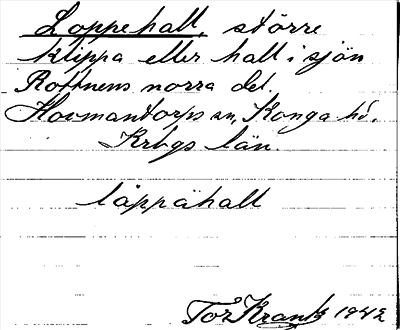 Loppehall, större
klippa eller hall i sjön
Rottnens norra del,
Hovmantorps sn, Konga hd.
Krbgs län.
låppähall
Tor Krantz 1942